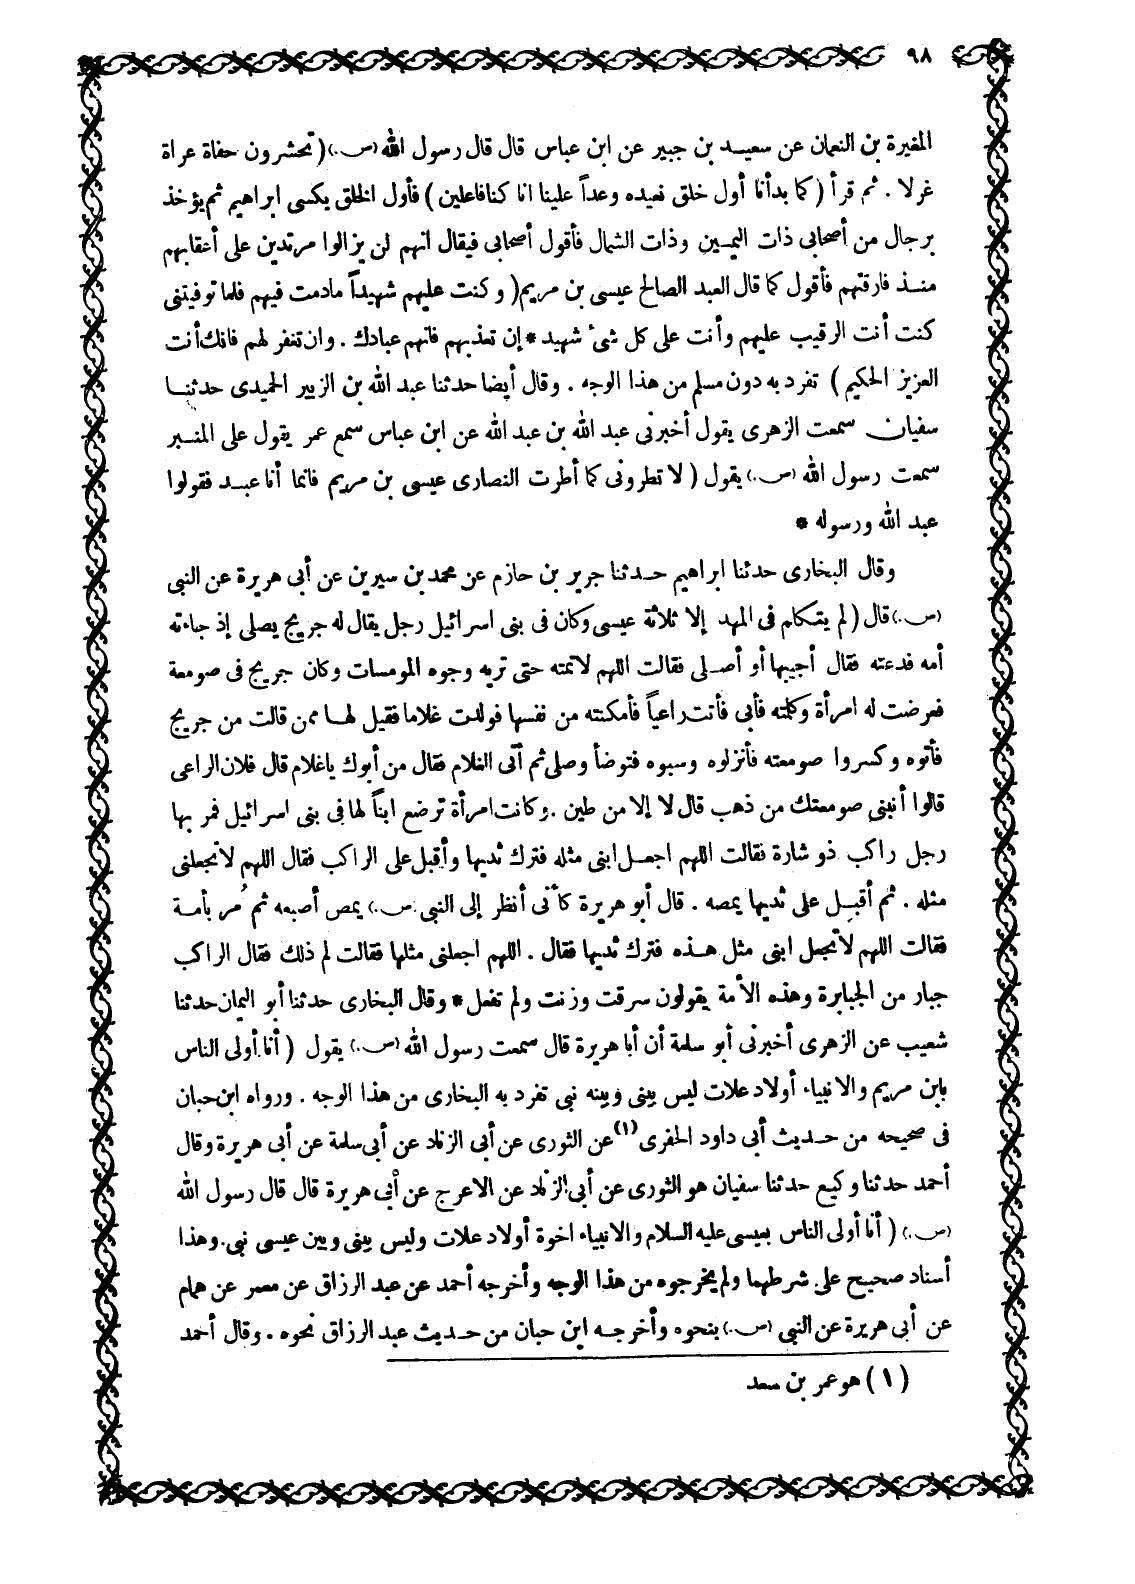 ٩٨
المغيرة بن النعمان عن سعيد بن جبير عن ابن عباس قال قال رسول الله (ص.) ( تحشرون حفاة عراة
غرلا . ثم قرأ ( كما بدأنا أول خلق نعيده وعداً علينا انا كنا فاعلين ) فأول الخلق يكسى ابراهيم ثم يؤخذ
برجال من أصحابى ذات اليمين وذات الشمال فأقول أصحابى فيقال انهم لن يزالوا مرتدين على أعقابهم
منذ فارقتهم فأقول كما قال العبد الصالح عيسى بن مريم ( وكنت عليهم شهيداً مادمت فيهم فلما توفيتنى
كنت أنت الرقيب عليهم وأنت على كل شىء شهيد * إن تعذبهم فانهم عبادك . وان تغفر لهم فانك أنت
العزيز الحكيم ) تفرد به دون مسلم من هذا الوجه . وقال أيضا حدثنا عبد الله بن الزبير الحميدى حدثنا
سفيان سمعت الزهرى يقول أخبرنى عبد الله بن عبد الله عن ابن عباس سمع عمر يقول على المنبر
سمعت رسول الله (ص.) يقول ( لا تطرونى كما أطرت النصارى عيسى بن مريم فانما أنا عبد فقولوا
عبد الله ورسوله *
وقال البخارى حدثنا ابراهيم حدثنا جرير بن حازم عن محمد بن سيرين عن أبى هريرة عن النبى
(ص.) قال ( لم يتكلم فى المهد إلا ثلاثة عيسى وكان فى بنى اسرائيل رجل يقال له جريج يصلى إذ جاءته
أمه فدعته فقال أجيبها أو أصلى فقالت اللهم لاتمته حتى تريه وجوه المومسات وكان جريج فى صومعة
فعرضت له امرأة وكلمته فأبى فأتت راعياً فأمكنته من نفسها فولدت غلاما فقيل لها ممن قالت من جريج
فأتوه وكسروا صومعته فأنزلوه وسبوه فتوضأ وصلى ثم أتى الغلام فقال من أبوك ياغلام قال فلان الراعى
قالوا أنبنى صومعتك من ذهب قال لا إلا من طين . وكانت امرأة ترضع ابناً لها فى بنى اسرائيل فمر بها
رجل راكب ذو شارة فقالت اللهم اجعل ابنى مثله فترك ثديها وأقبل على الراكب فقال اللهم لاتجعلنى
مثله . ثم أقبل على ثديها يمصه . قال أبو هريرة كأنى أنظر إلى النبى (ص.) يمص أصبعه ثم مُر بأمة
فقالت اللهم لاتجعل ابنى مثل هذه فترك ثديها فقال . اللهم اجعلنى مثلها فقالت لم ذلك فقال الراكب
جبار من الجبابرة وهذه الأمة يقولون سرقت وزنت ولم تفعل * وقال البخارى حدثنا أبو اليمان حدثنا
شعيب عن الزهرى أخبرنى أبو سلمة أن أبا هريرة قال سمعت رسول الله (ص.) يقول ( أنا أولى الناس
بابن مريم والانبياء أولاد علات ليس بينى وبينه نبى تفرد به البخارى من هذا الوجه . ورواه ابن حبان
فى صحيحه من حديث أبى داود الحفرى (١) عن الثورى عن أبى الزناد عن أبى سلمة عن أبى هريرة وقال
أحمد حدثنا وكيع حدثنا سفيان هو الثورى عن أبى الزناد عن الاعرج عن أبى هريرة قال قال رسول الله
(ص.) ( أنا أولى الناس بعيسى عليه السلام والانبياء اخوة أولاد علات وليس بينى وبين عيسى نبى . وهذا
أسناد صحيح على شرطهما ولم يخرجوه من هذا الوجه وأخرجه أحمد عن عبد الرزاق عن معمر عن همام
عن أبى هريرة عن النبى (ص.) بنحوه وأخرجه ابن حبان من حديث عبد الرزاق نحوه . وقال أحمد
(١) هو عمر بن سعد